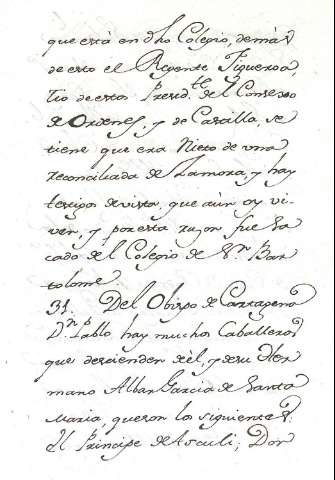 que está en dho Colegio, demas
de esto el Regente Figueroa,
tio de estos Presid.te del Consexo
de Ordenes, y de Castilla, se
tiene que era Nieto de una
reconciliada de Zamora, y hay
testigos de vista, que aùn oy vi-
ven, y por esta razon fue sa
cado del Colegio de S.n Bar
tolome.
31. Del Obispo de Cartagena
D.n Pablo, hay muchos Caballeros
que descienden de èl, y de su Her
mano Albar Garcia de Santa
Maria, que son los siguientes:
El Principe de Asculi; Don